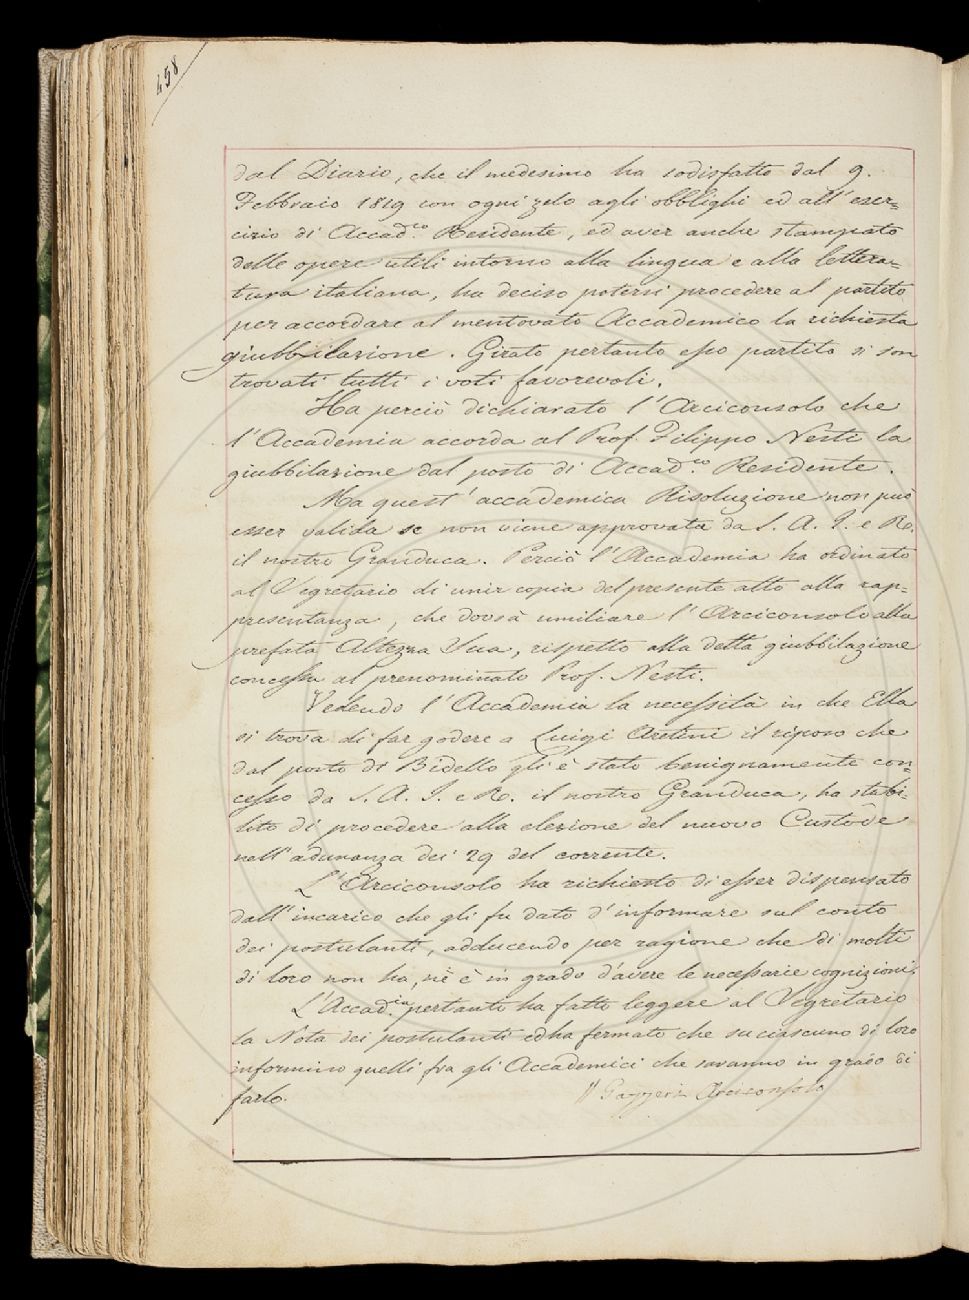 458
dal Diario, che il medesimo ha sodisfatto dal 9.
Febbraio 1819 con ogni zelo agli obblighi ed all'eser=
cizio di Accad.co Residente, ed aver anche stampato
delle opere utili intorno alla lingua e alla lettera=
tura italiana, ha deciso potersi procedere al partito
per accordare al mentovato Accademico la richiesta
giubbilazione. Girato pertanto esso partito si son
trovati tutti i voti favorevoli.
Ha perciò dichiarato l'Arciconsolo che
l'Accademia accorda al Prof. Filippo Nesti la
giubbilazione dal posto di Accad.co Residente.
Ma quest'accademica Risoluzione non può
esser valida se non viene approvata da S. A. I. e R.
il nostro Granduca. Perciò l'Accademia ha ordinato
al Segretario di unir copia del presente atto alla rap=
presentanza, che dovrà umiliare l'Arciconsolo alla
prefata Altezza Sua, rispetto alla detta giubbilazione
concessa al prenominato Prof. Nesti.
Vedendo l'Accademia la necessità in che Ella
si trova di far godere a Luigi Aretini il riposo che
dal posto di Bidello gli è stato benignamente con=
cesso da S. A. I. e R. il nostro Granduca, ha stabi=
lito di procedere alla elezione del nuovo Custode
nell'adunanza dei 29 del corrente.
L'Arciconsolo ha richiesto di esser dispensato
dall'incarico che gli fu dato d'informare sul conto
dei postulanti, adducendo per ragione che di molti
di loro non ha, nè è in grado d'avere le necessarie cognizioni.
L'Accad.ia pertanto ha fatto leggere al Segretario
la Nota dei postulanti ed ha fermato che su ciascuno di loro
informino quelli fra gli Accademici che saranno in grado di
farlo.
Gazzeri Arciconsolo